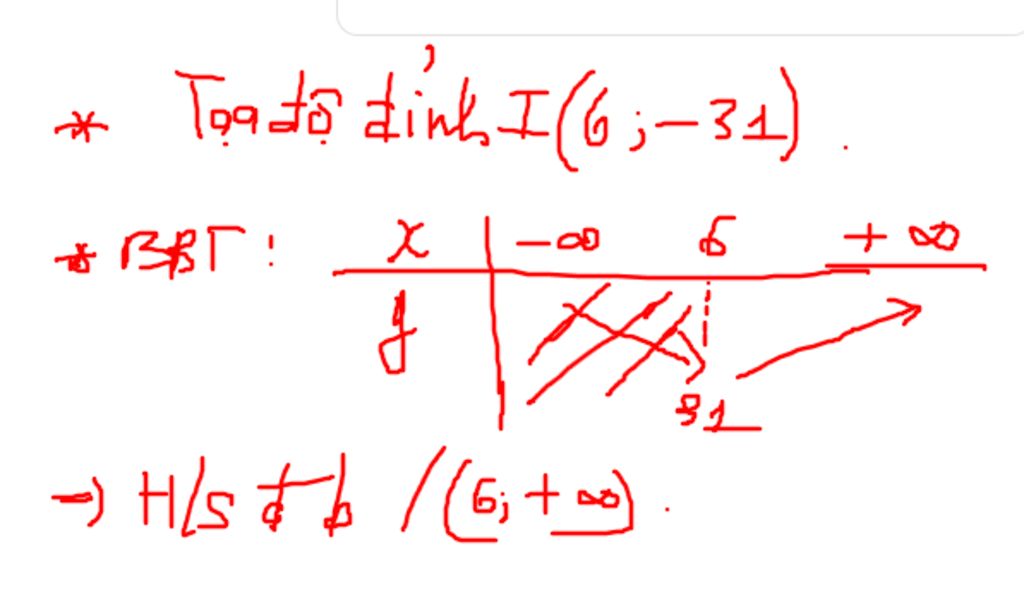 * Toạ độ đỉnh I(6;-31).
* BBT: x -∞ 6 +∞
y
31
→ H/s đb /(6;+∞).